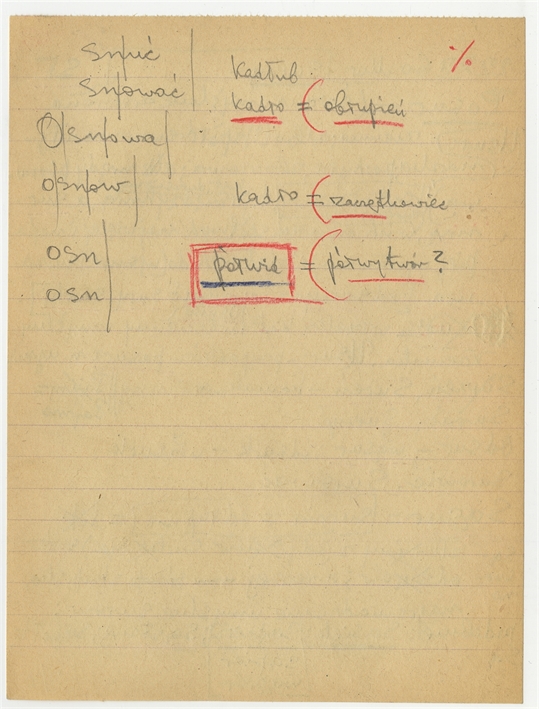 snuć
snować
Osnowa
osnow
osn
osn
%
kadłub
kadło = (obłupień
kadło = (zarętkowiec
półwić = (półwytwór?